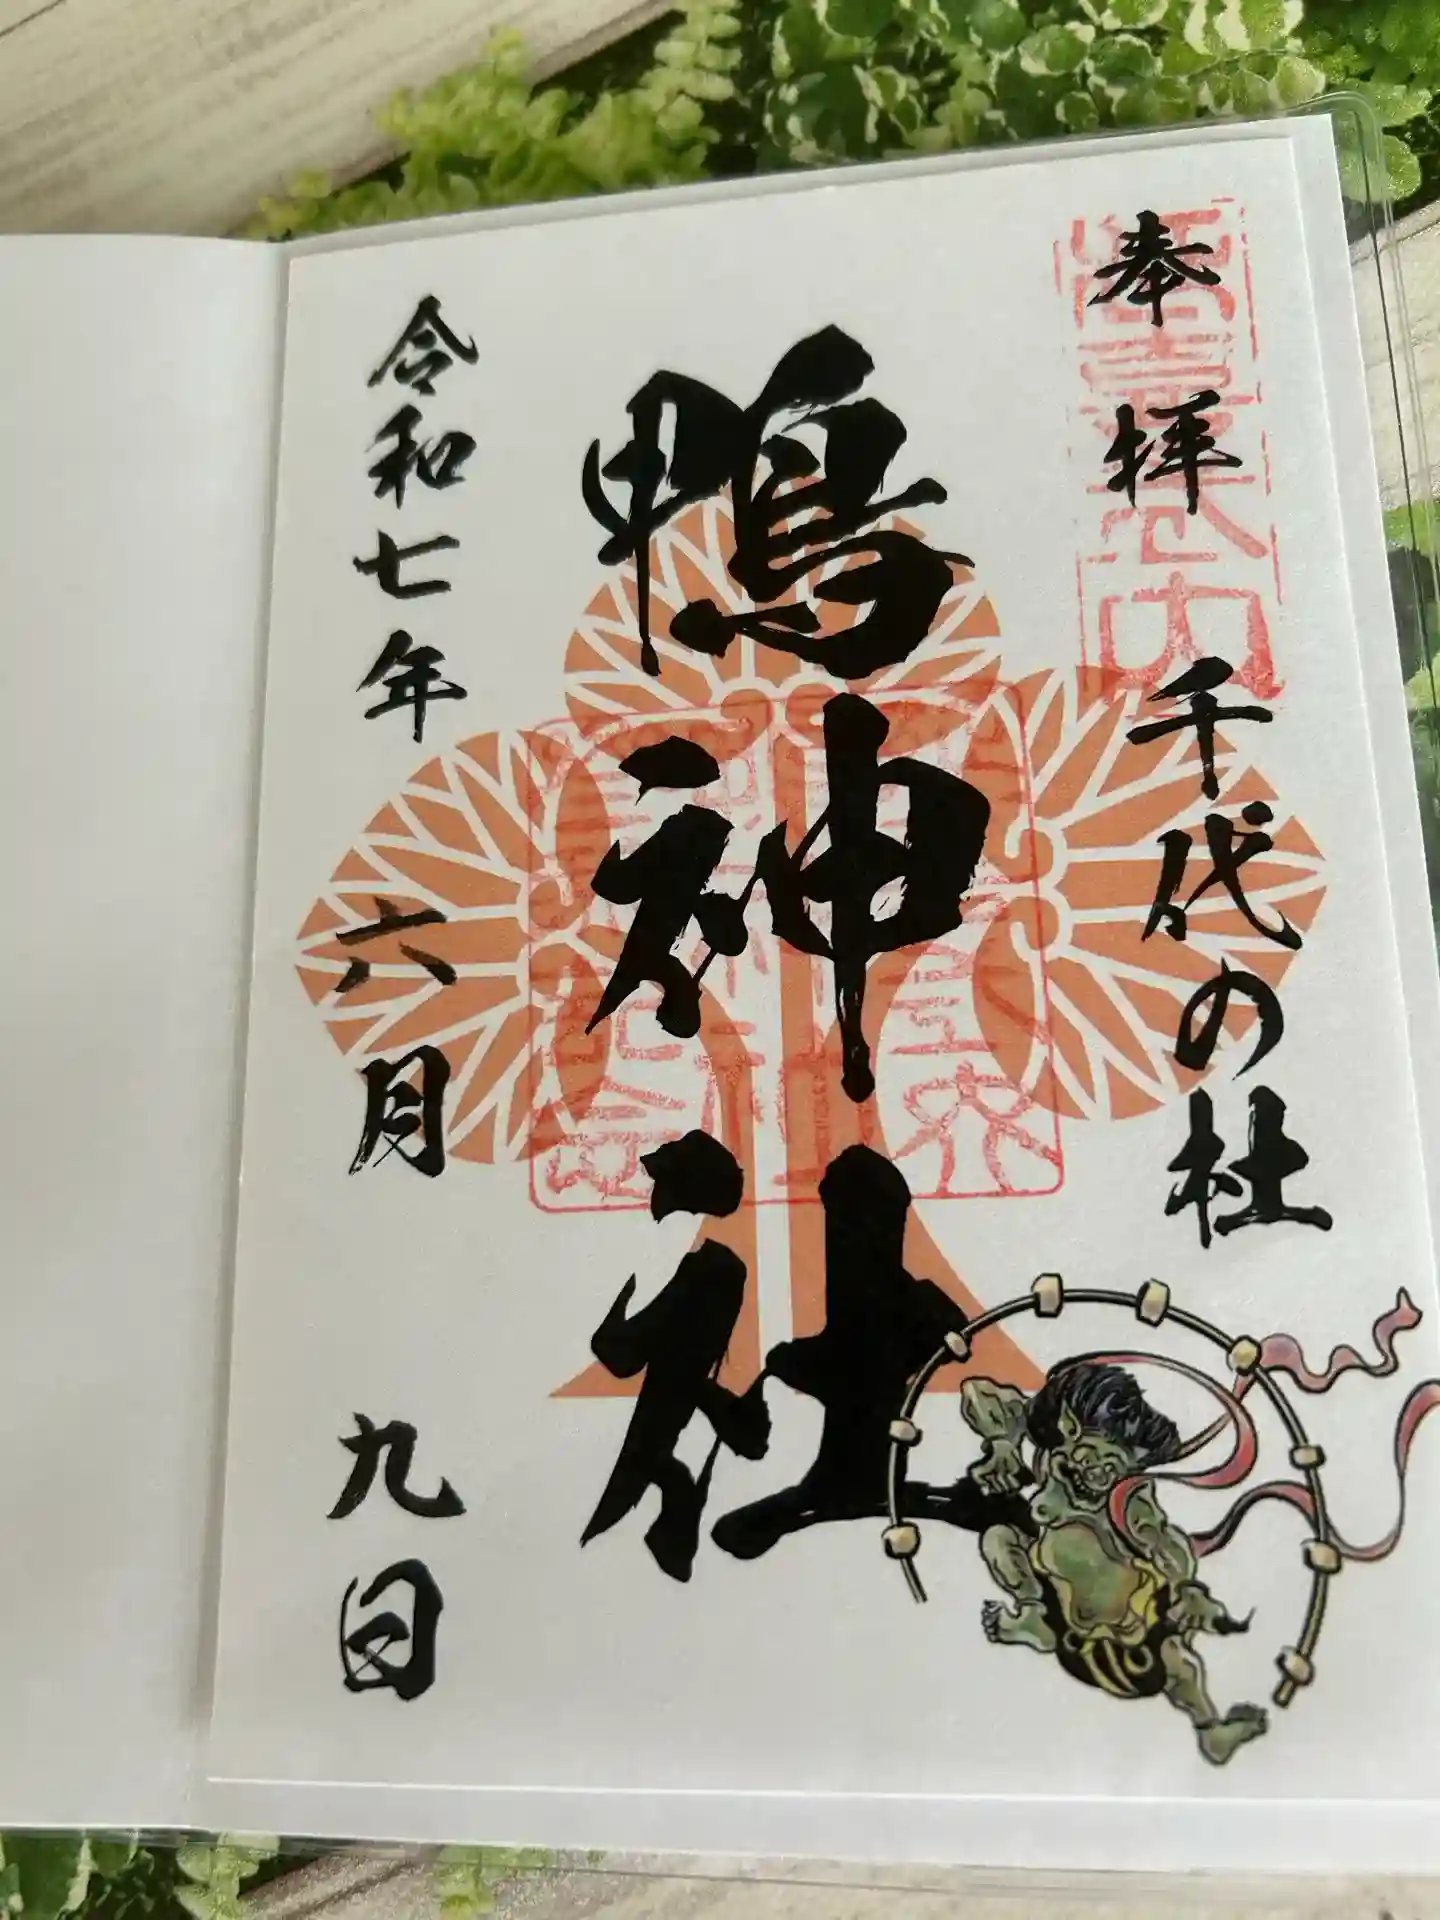 奉拝 千代の杜
鴨神社
令和七年 六月 九日